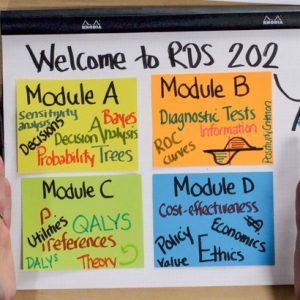 RHODIA
RHODIA
Welcome to RDS 202
Module A
Sensitivity analysis
Bayes
Decisions
Decision Analysis
Probability Trees
Module B
Diagnostic Tests
Information
ROC curves
Positivity Criterion
Module C
Preferences
Utilities
QALYS
DALYS
Theory
Module D
Cost-effectiveness
Policy
Economics
Value
Ethics